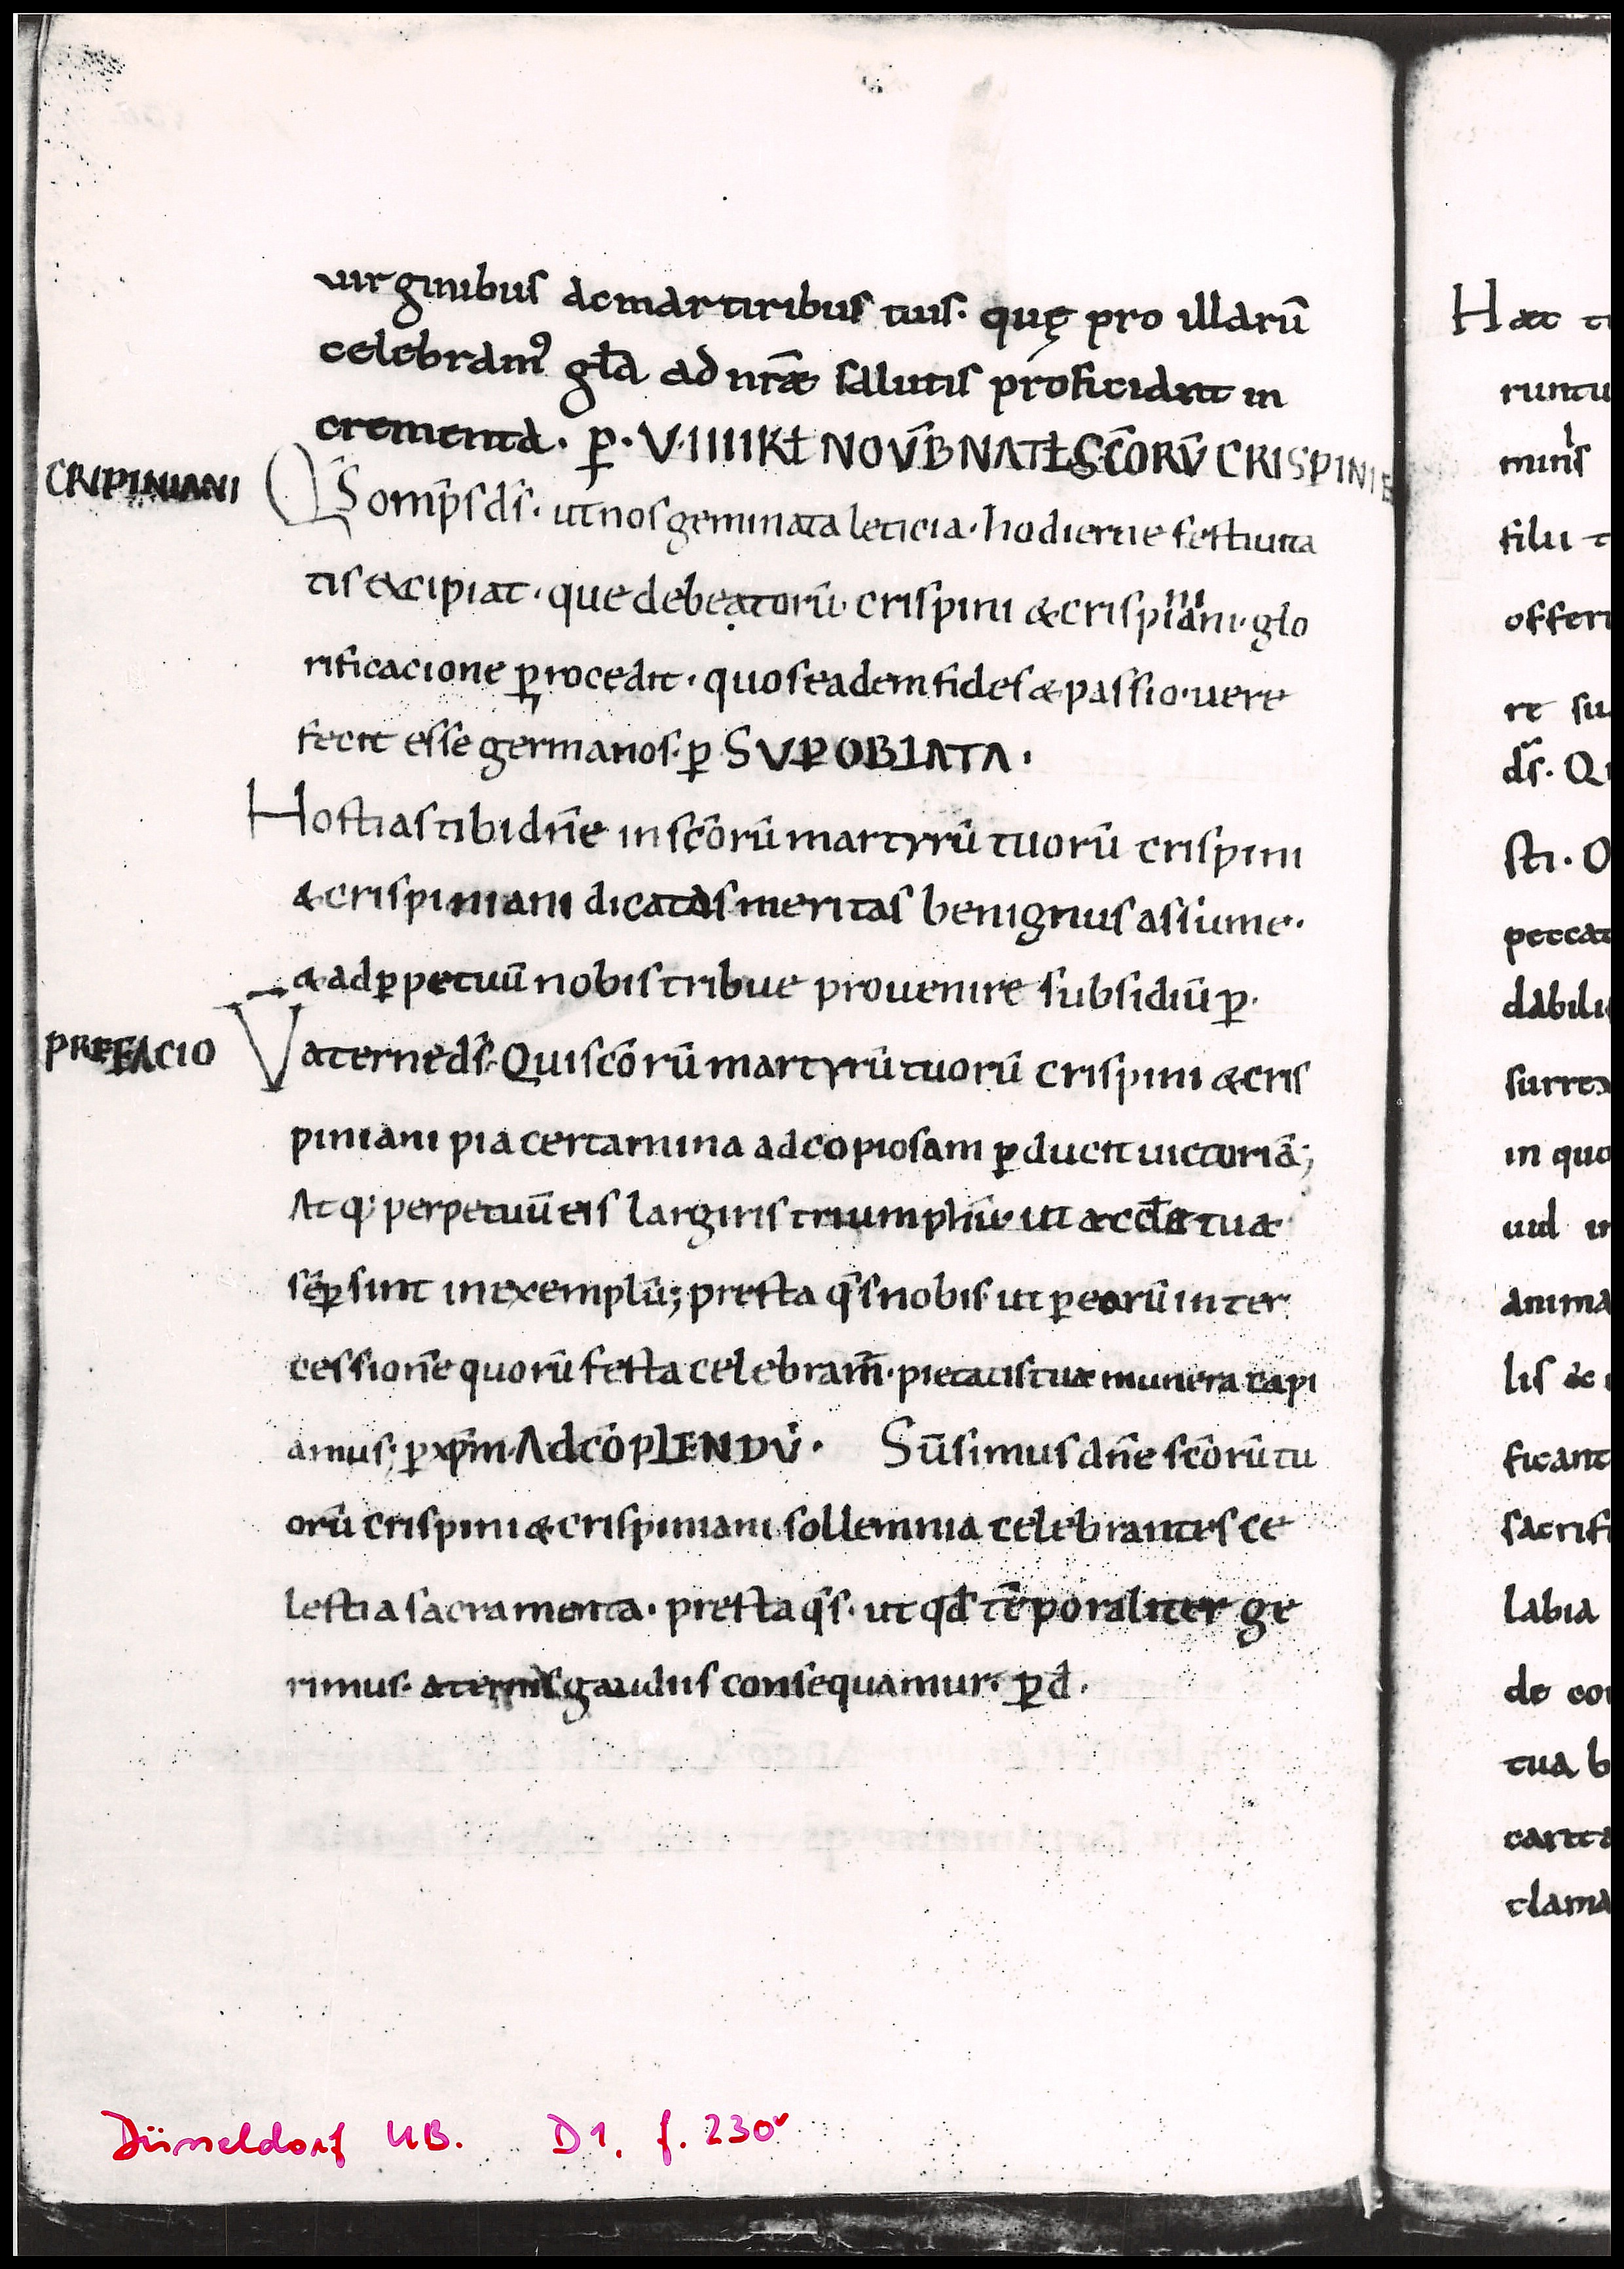 uirginibus ac martiribus tuis· quę pro illarū
celebram᷒ gła ad nr̄æ salutis proficiant in
crementa· ꝑ· V·IIIIKƚ NOV̄B NATƚ SC̄ORV̄ CRISPINI E
CRIPINIANI
Qs om̄ps ds̄· ut nos geminata leticia· hodierne festiuita
tis excipiat· que de beatorū crispini & crispiniani· glo
rificacione procedit· quos eadem fides & passio· uere
fecit esse germanos· ꝑ SUP OBLATA·
Hostias tibi dn̄e in sc̄orū martyrū tuorū crispini
& crispiniani dicatas meritas benignus assume·
& ad ꝑpetuū nobis tribue prouenire subsidiū ꝑ·
PREFACIO
V aeterne ds̄· Qui sc̄orū martyrū tuorū crispini & cris
piniani pia certamina ad copiosam ꝑducit uictoriā;
Atq; perpetuū eis largiris triumphū ut æccłæ tuæ
sēꝑ sint in exemplū; presta qs̄ nobis ut ꝑ eorū inter
cessionē quorū festa celebram̄· pietatis tuæ munera capi
amus; ꝑ xp̄m· Ad cōpLENDV̄· Sūsimus dn̄e sc̄orū tu
orū crispini & crispiniani sollemnia celebrantes ce
lestia sacramenta· presta qs̄· ut qd̄ tēporaliter ge
rimus· æternis gaudiis consequamur· ꝑ d̄·
Düsseldorf UB. D1, f. 230v
Hæc
runtu
filii
offeri
re su
ds̄· Qu
sti· O
peccat
dabili
surrex
in quo
uid in
anima
lis &
ficant
sacrifi
labia
de co
tua b
carita
clama